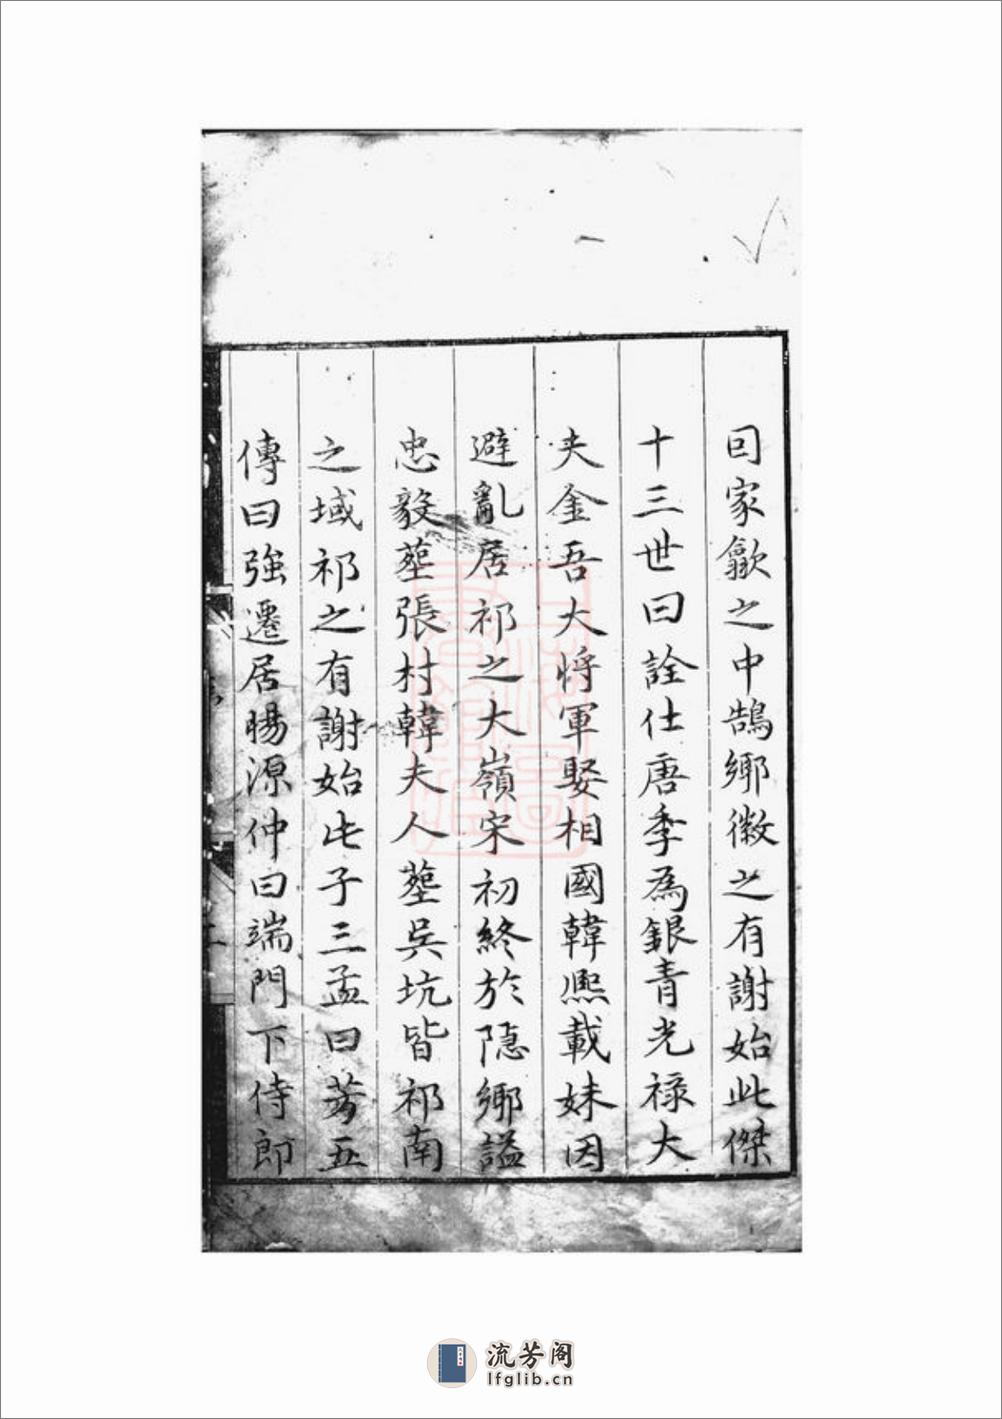 回家歙之中鵠鄉徽之有謝始此傑
十三世曰詮仕唐季為銀青光祿大
夫金吾大將軍娶相國韓熙載妹因
避亂居祁之大嶺宋初終於隱鄉謚
忠毅塟張村韓夫人塟吳坑皆祁南
之域祁之有謝始此子三孟曰芳五
傳曰強遷居暘源仲曰端門下侍郎
流芳阁
lfglib.cn